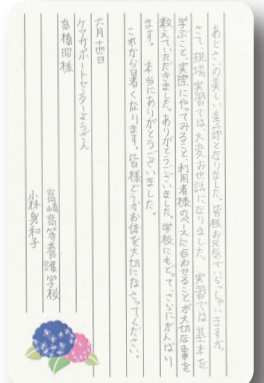 あじさいの美しい季節となりました。皆様お元気でいらっしゃいますか。
さて、現場実習では大変お世話になりました。実習では基本を
学ぶこと、実際にやってみること、利用者様のペースに合わせることが大切な事を
教えていただきました。ありがとうございました。学校にもどって、さらにがんばり
ます。本当にありがとうございました。
これから暑くなります。皆様どうかお体を大切になさってください。
六月十四日
高崎高等養護学校
小林身和子
ケアサポートセンターようざん
高橋昭様